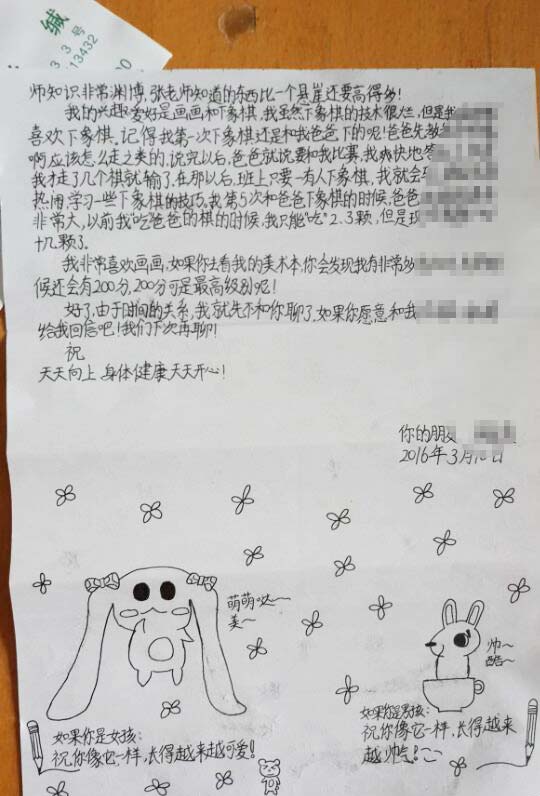 缄
33号
13432
00
师知识非常渊博,张老师知道的东西比一个悬崖还要高得多!
我的兴趣爱好是画画和下象棋,我虽然下象棋的技术很烂,但是我
喜欢下象棋。记得我第一次下象棋还是和我爸爸下的呢!爸爸先教
啊,应该怎么走之类的,说完以后,爸爸就说要和我比赛,我爽快地答
我才走了几个棋就输了,在那以后,班上只要一有人下象棋,我就会
热闹,学习一些下象棋的技巧,我第5次和爸爸下象棋的时候,爸爸
非常大,以前我"吃"爸爸的棋的时候,我只能"吃"2.3颗,但是现
十几颗了。
我非常喜欢画画,如果你去看我的美术本,你会发现我有非常多
候还会有200分,200分可是最高级别呢!
好了,由于时间的关系,我就先不和你聊了,如果你愿意和我
给我回信吧!我们下次再聊!
祝
天天向上 身体健康 天天开心!
你的朋友
2016年3月 日
萌萌哒~
美~
帅~
酷~
如果你是女孩:
祝你像它一样,长得越来越可爱!
如果你是男孩:
祝你像它一样,长得越来
越帅气!